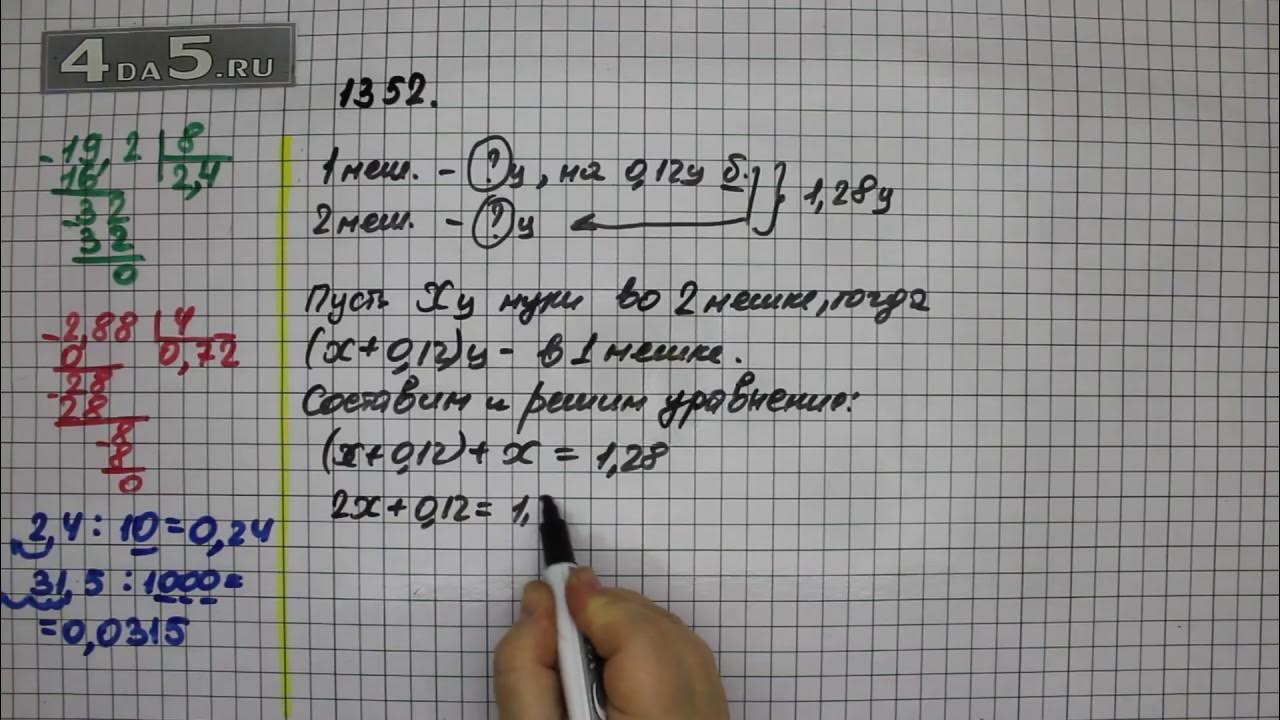 4DA5.RU
1352.
-19,2 | 8
16 2,4
-32
32
0
-2,88 | 4
0 0,72
-28
28
-8
8
0
2,4 : 10 = 0,24
31,5 : 1000 =
= 0,0315
1 меш. - ? ц, на 0,12ц б. } 1,28ц
2 меш. - ? ц
Пусть х ц муки во 2 мешке, тогда
(х + 0,12)ц - в 1 мешке.
Составим и решим уравнение:
(х + 0,12) + х = 1,28
2х + 0,12 = 1,